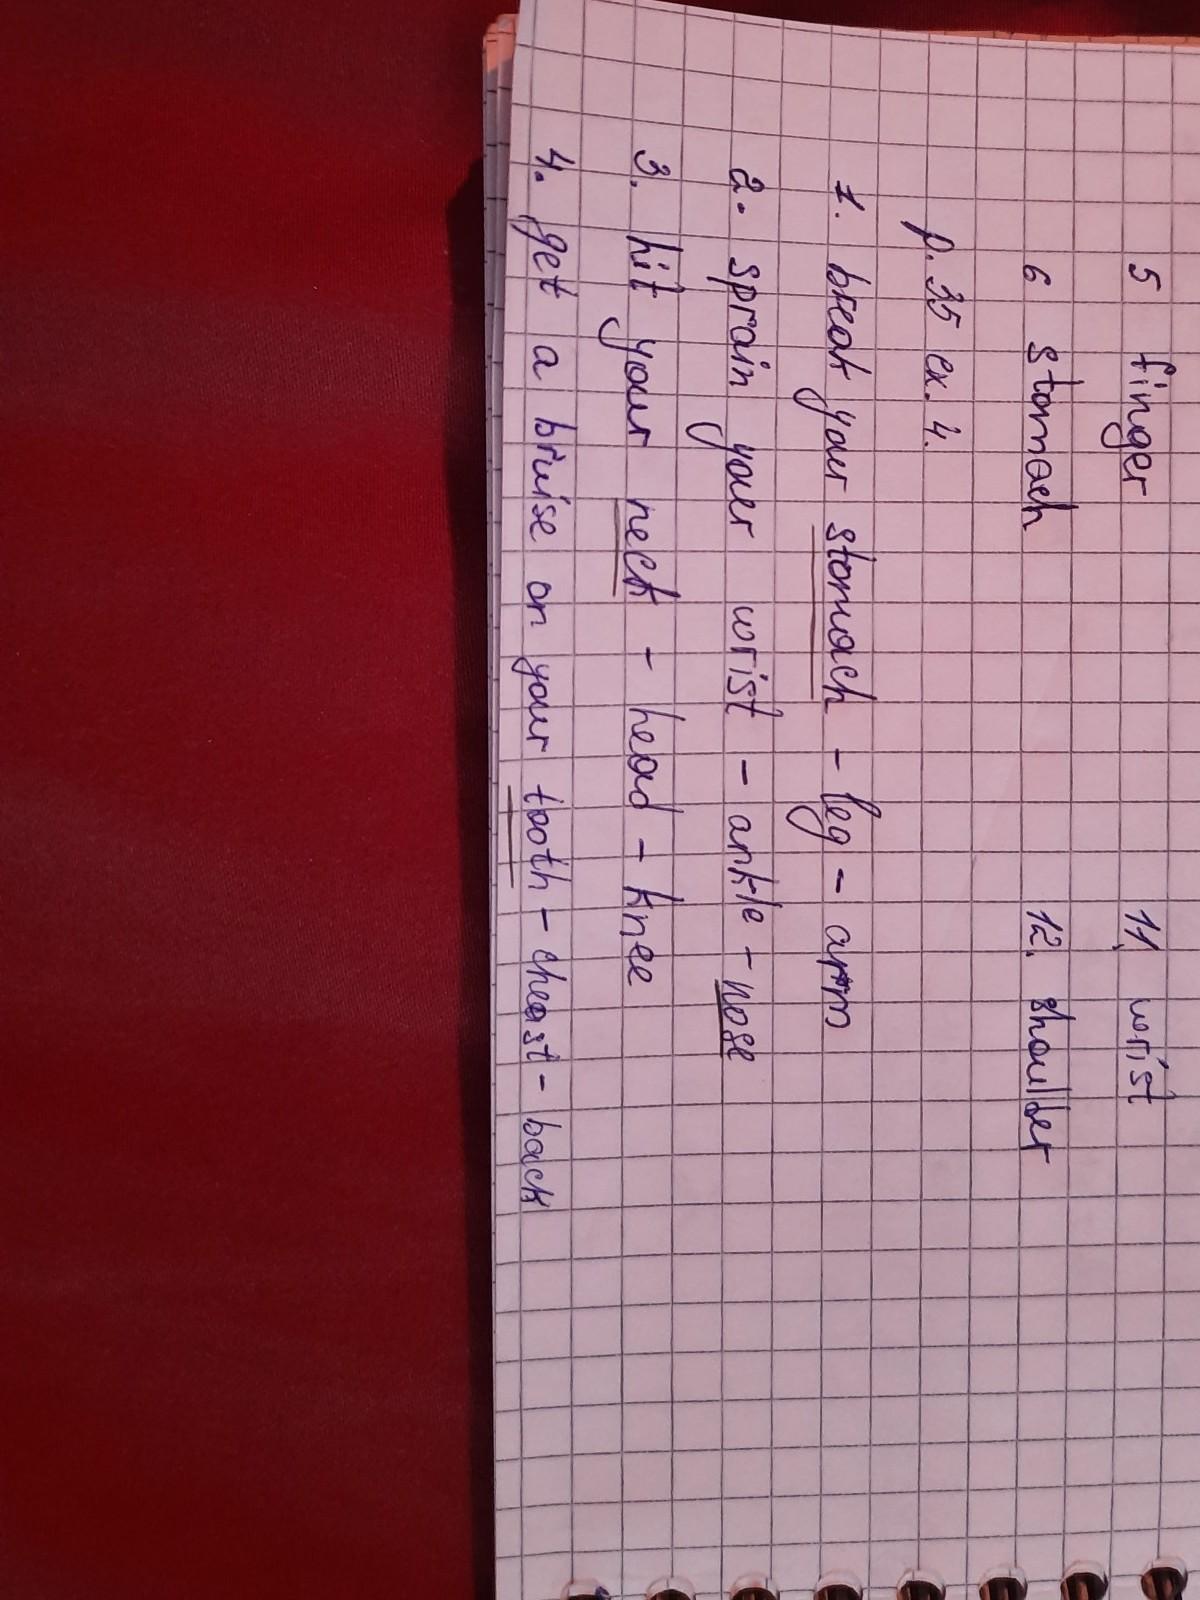 5 finger 11. wrist
6 stomach 12. shoulder
p. 35 ex. 4.
1. break your stomach - leg - arm
2. sprain your wrist - ankle - nose
3. hit your neck - head - knee
4. get a bruise on your tooth - cheast - back